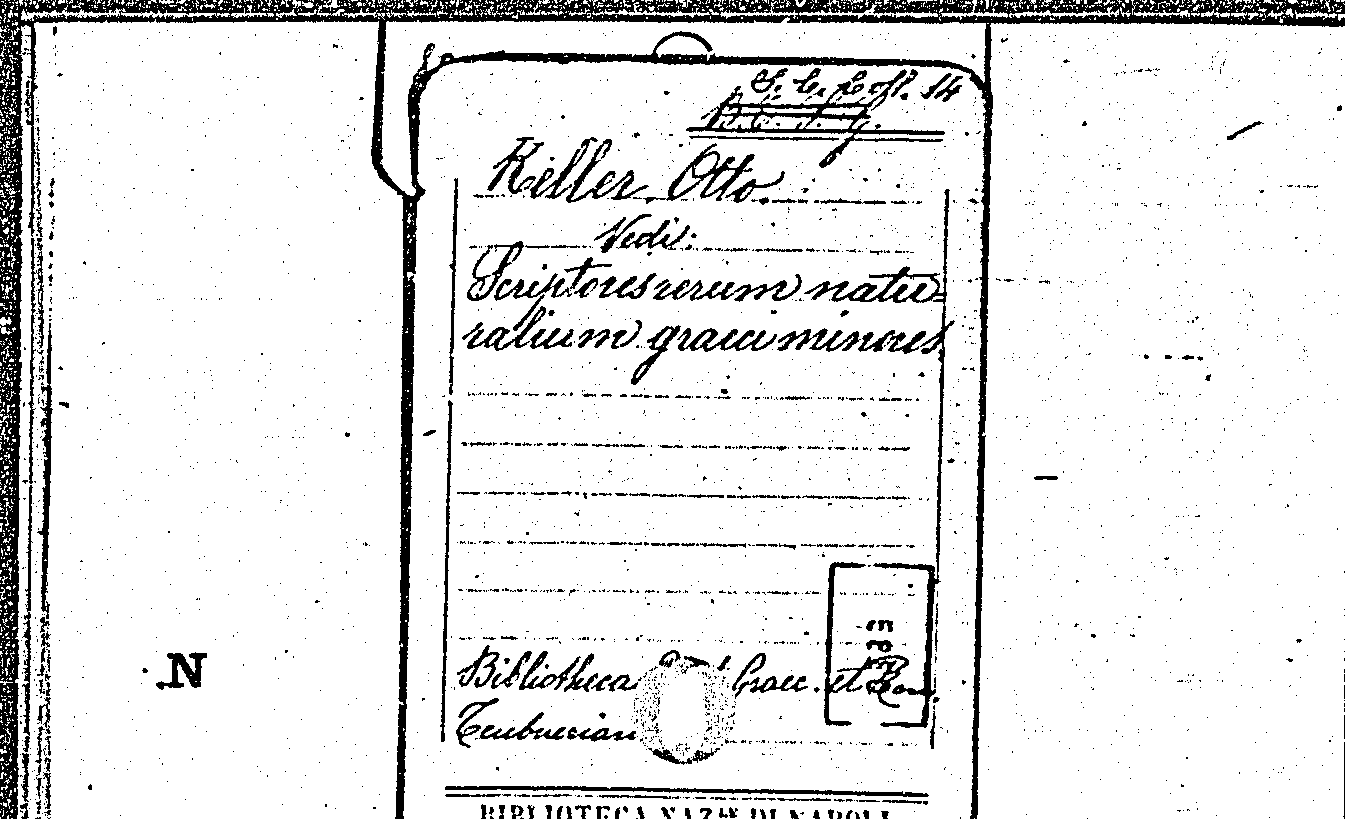 14
Keller. Otto.
Vedi:
Scriptores rerum natu-
ralium graeci minores
N
Bibliotheca Graec. et Rom.
Teubnerian
BIBLIOTECA NAZ.LE DI NAPOLI